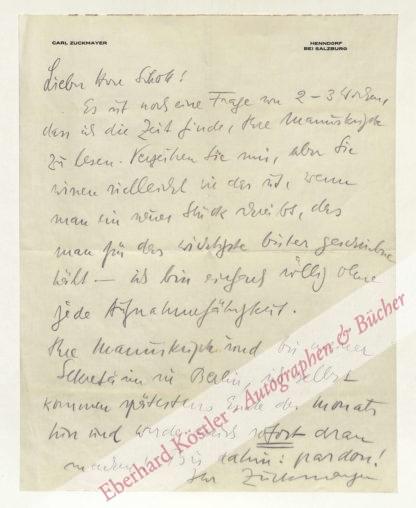 CARL ZUCKMAYER
HENNDORF
BEI SALZBURG
Lieber Herr Schott!
Es ist noch eine Frage von 2–3 Wochen,
dass ich die Zeit finde, Ihre Manuskripte
zu lesen. Verzeihen Sie mir, aber Sie
wissen vielleicht wie das ist, wenn
man ein neues Stück schreibt, das
man für das wichtigste bisher geschriebene
hält — ich bin einfach völlig ohne
jede Aufnahmefähigkeit.
Ihre Manuskripte sind bei meiner
Sekretärin in Berlin, selbst
kommen spätestens Ende des Monats
hin und werde mich sofort dran
machen. Bis dahin: pardon!
Ihr Zuckmayer
Eberhard Köstler - Autographen & Bücher